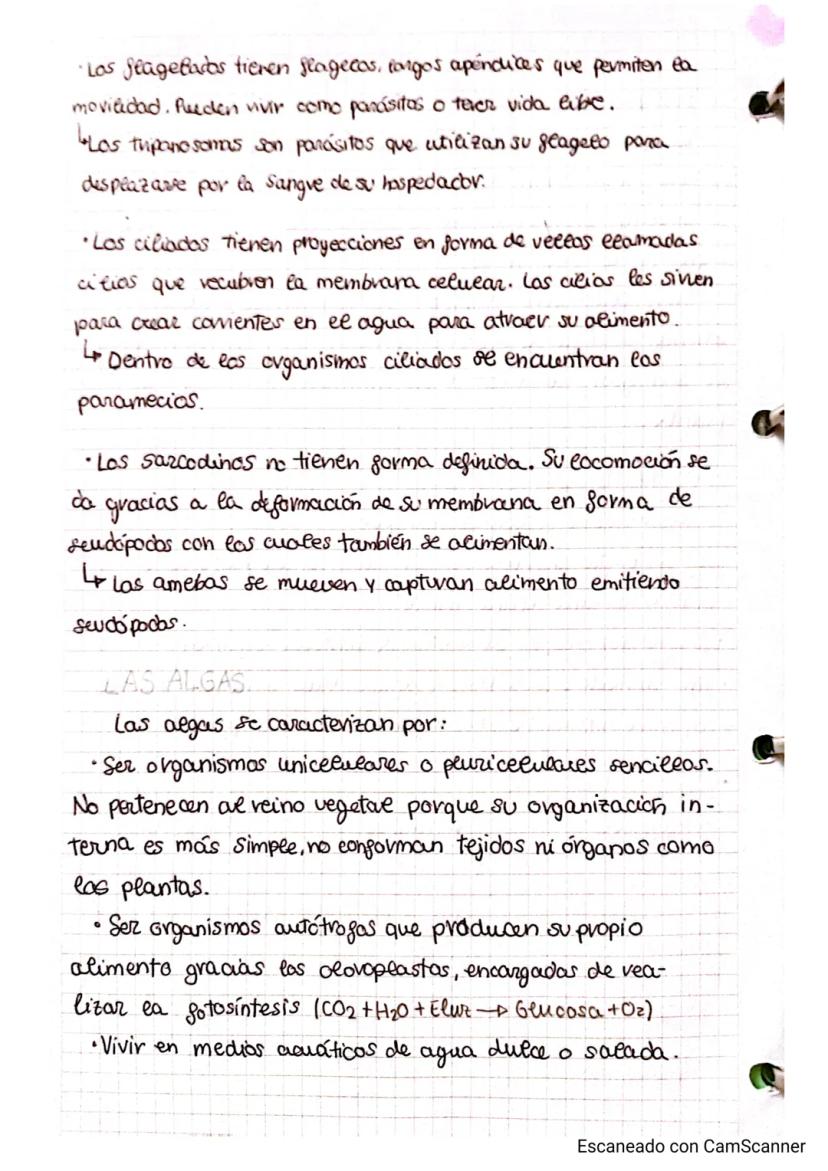 · Los flagelados tienen flagelos, largos apéndices que permiten la
movilidad. Pueden vivir como parásitos o tener vida libre.
↳ Los tripanosomas son parásitos que utilizan su flagelo para
desplazarse por la sangre de su hospedador.
· Los ciliados tienen proyecciones en forma de vellos llamadas
cilios que recubren la membrana celular. Los cilios les sirven
para crear corrientes en el agua para atraer su alimento.
↳ Dentro de los organismos ciliados se encuentran los
paramecios.
· Los sarcodinos no tienen forma definida. Su locomoción se
da gracias a la deformación de su membrana en forma de
seudópodos con los cuales también se alimentan.
↳ Las amebas se mueven y capturan alimento emitiendo
seudópodos.
LAS ALGAS.
Las algas se caracterizan por:
· Ser organismos unicelulares o pluricelulares sencillos.
No pertenecen al reino vegetal porque su organización in-
terna es más simple, no conforman tejidos ni órganos como
las plantas.
· Ser organismos autótrofos que producen su propio
alimento gracias los cloroplastos, encargados de rea-
lizar la fotosíntesis (CO2 + H2O + Eluz → Glucosa + O2)
· Vivir en medios acuáticos de agua dulce o salada.
Escaneado con CamScanner